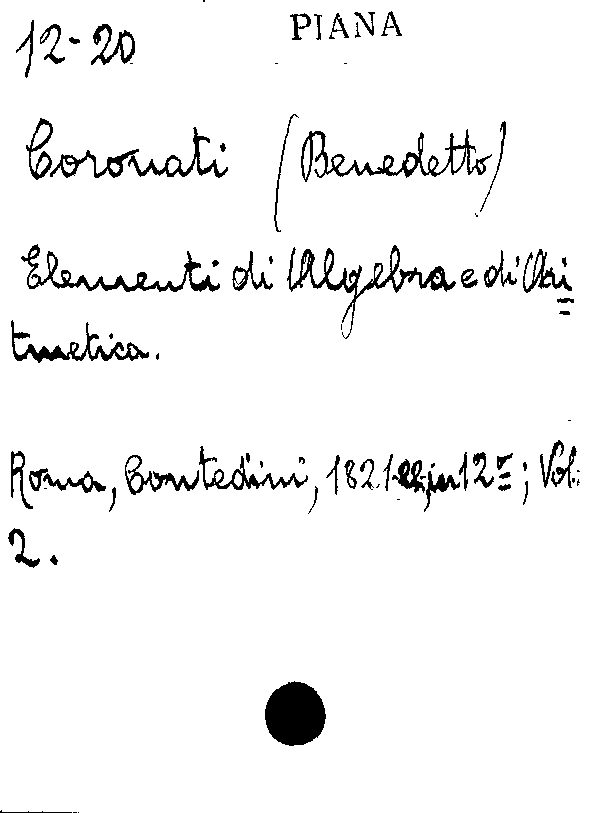 12-20 PIANA
Coronati (Benedetto)
Elementi di Algebra e di Ari=
tmetica.
Roma, Contedini, 1821-22, in 12=; Vol.
2.